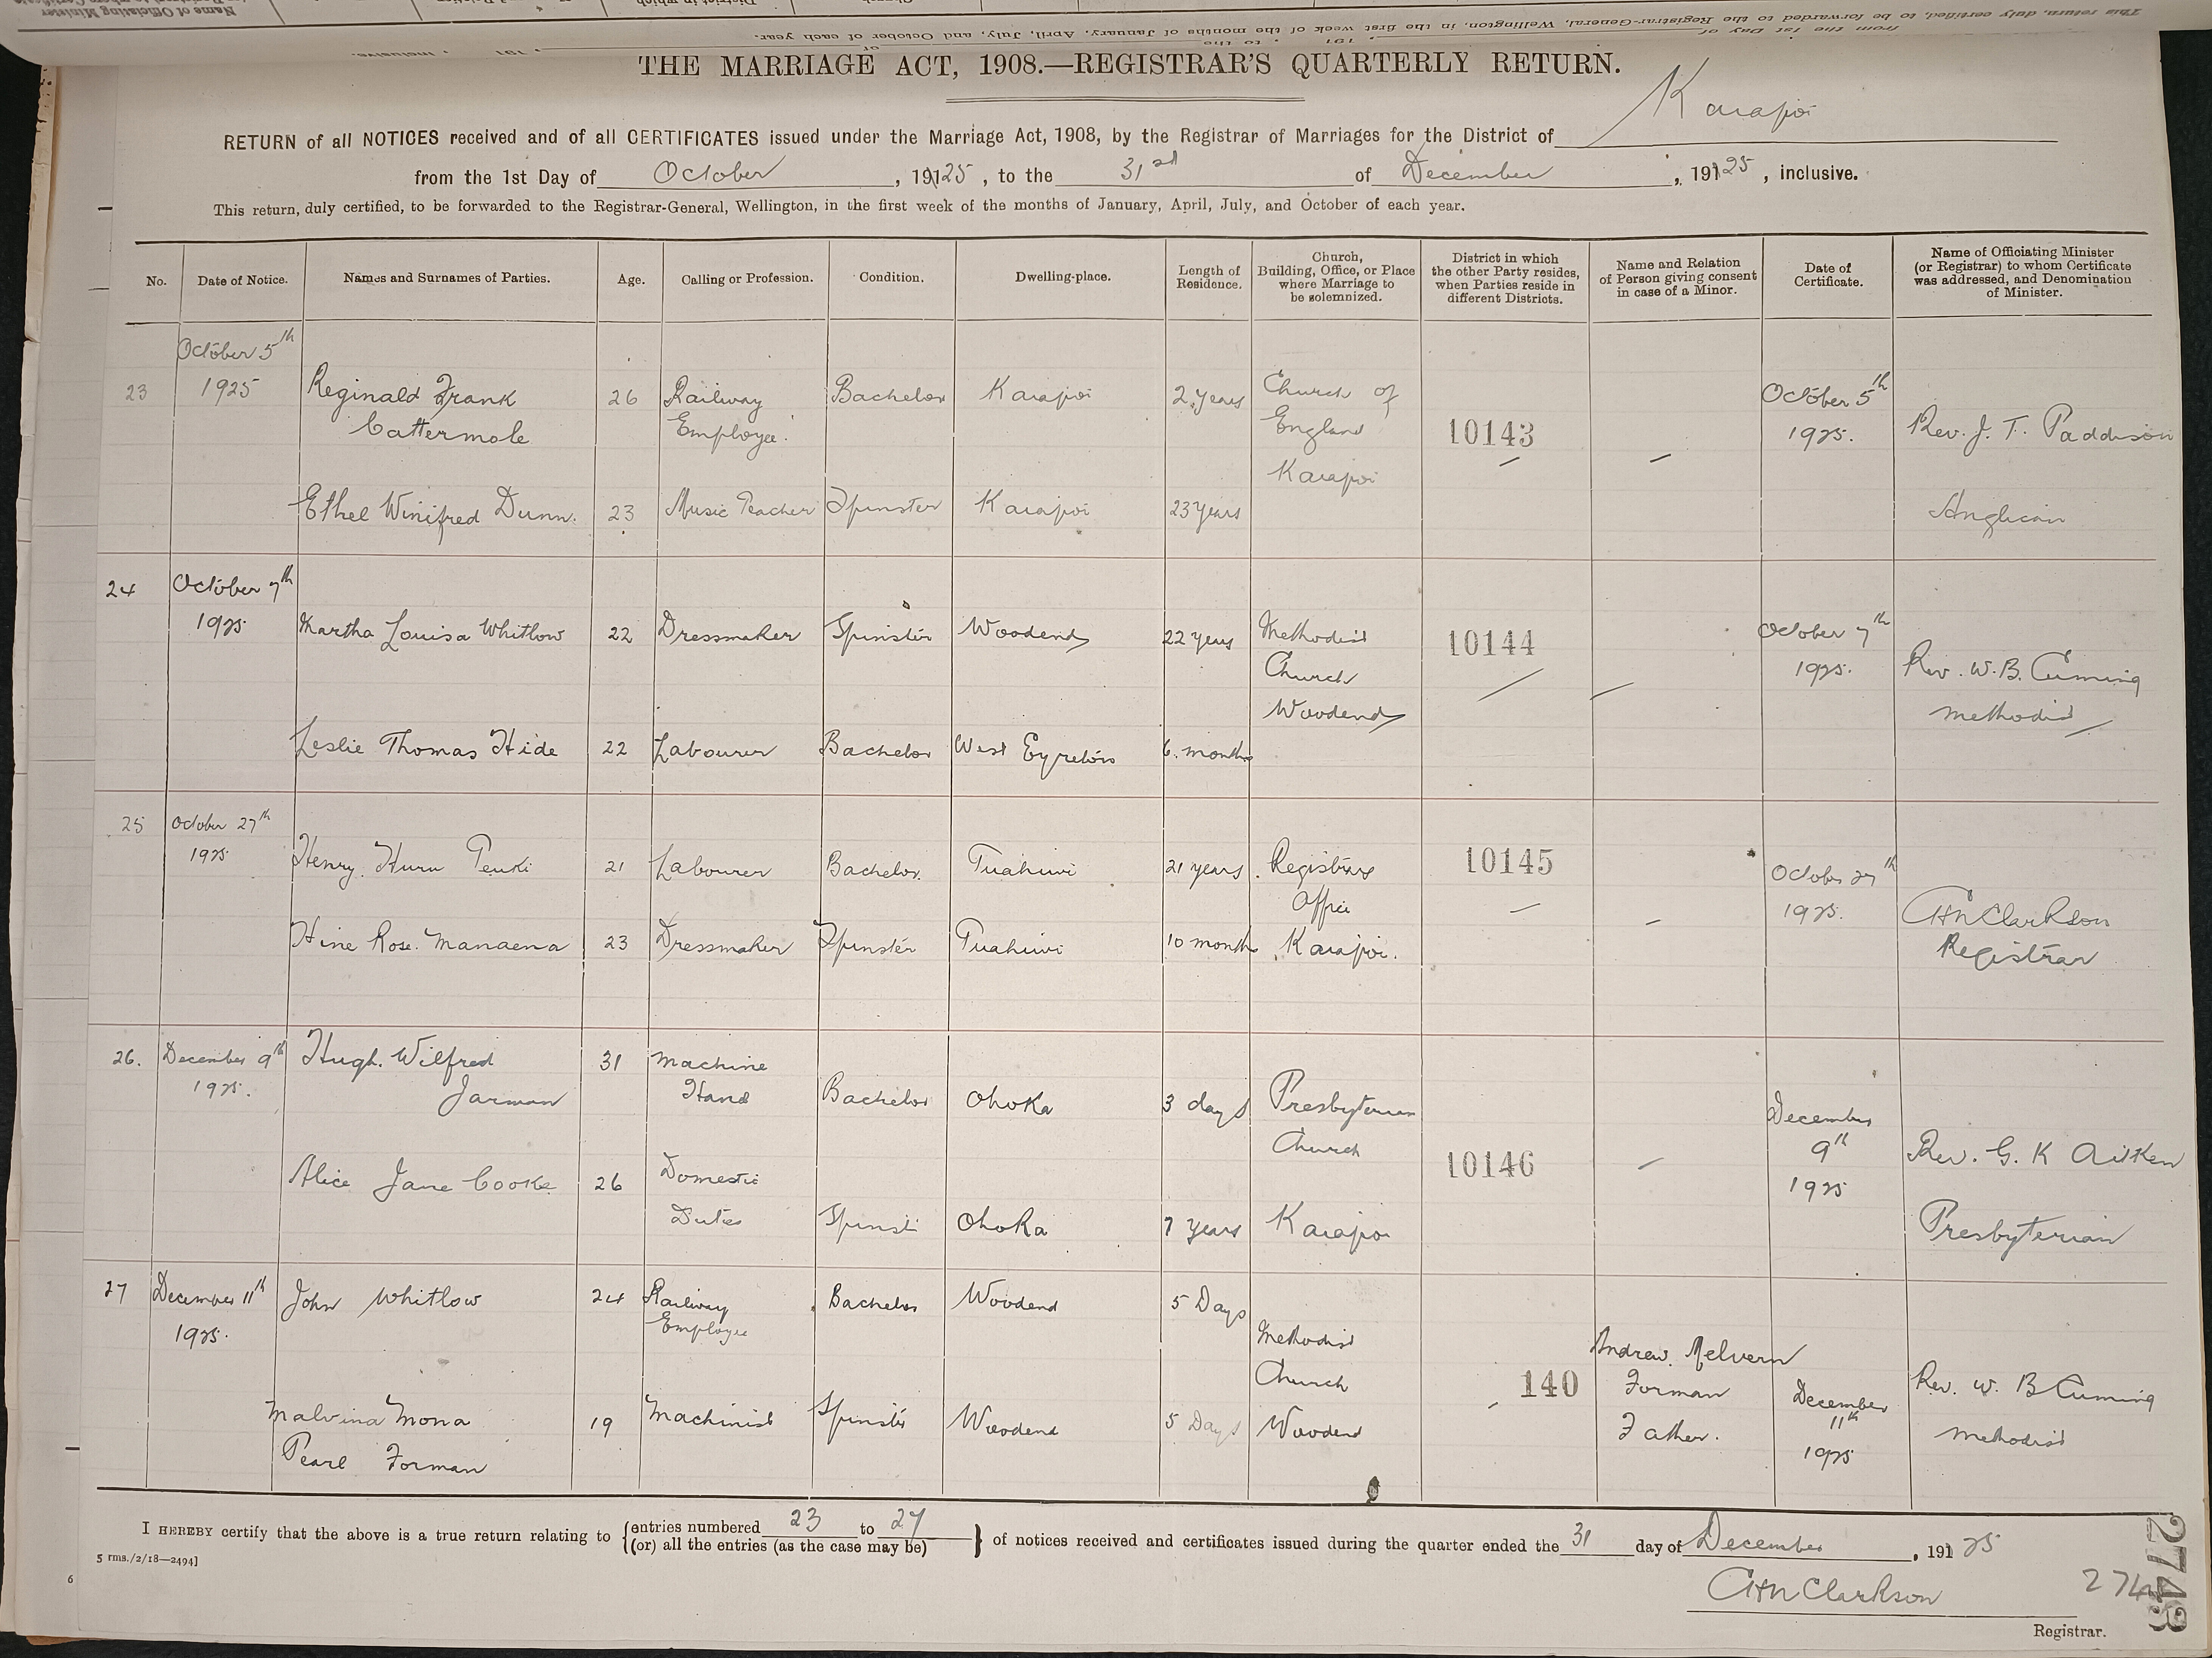 THE MARRIAGE ACT, 1908.—REGISTRAR'S QUARTERLY RETURN.
RETURN of all NOTICES received and of all CERTIFICATES issued under the Marriage Act, 1908, by the Registrar of Marriages for the District of Kaiapoi
from the 1st Day of October, 19125, to the 31st of December, 19125, inclusive.
This return, duly certified, to be forwarded to the Registrar-General, Wellington, in the first week of the months of January, April, July, and October of each year.
No. Date of Notice. Names and Surnames of Parties. Age. Calling or Profession. Condition. Dwelling-place. Length of Residence. Church, Building, Office, or Place where Marriage to be solemnized. District in which the other Party resides, when Parties reside in different Districts. Name and Relation of Person giving consent in case of a Minor. Date of Certificate. Name of Officiating Minister (or Registrar) to whom Certificate was addressed, and Denomination of Minister.
23 October 5th 1925 Reginald Frank Cattermole 26 Railway Employee. Bachelor Kaiapoi 2 years Church of England Kaiapoi 10143 – – October 5th 1925. Rev. J. T. Paddison
Ethel Winifred Dunn. 23 Music Teacher Spinster Kaiapoi 23 years Anglican
24 October 7th 1925 Martha Louisa Whitlow 22 Dressmaker Spinster Woodend 22 years Methodist Church Woodend 10144 October 7th 1925. Rev. W. B. Cuming Methodist
Leslie Thomas Hide 22 Labourer Bachelor West Eyreton 6 months
25 October 27th 1925 Henry Huru Peuki 21 Labourer Bachelor. Tuahiwi 21 years Registrars Office Kaiapoi. 10145 – – October 27th 1925. CHN Clarkson Registrar
Hine Rose Manaena 23 Dressmaker Spinster Tuahiwi 10 months
26. December 9th 1925. Hugh Wilfred Jarman 31 Machine Hand Bachelor Ohoka 3 days Presbyterian Church Kaiapoi 10146 – December 9th 1925 Rev. G. K Aitken Presbyterian
Alice Jane Cooke 26 Domestic Duties Spinst Ohoka 7 years
27 December 11th 1925. John Whitlow 24 Railway Employee Bachelor Woodend 5 Days Methodist Church Woodend 140 Andrew Melvern Forman Father. December 11th 1925 Rev. W. B Cuming Methodist
Malvina Mona Pearl Forman 19 Machinist Spinster Woodend 5 Days
I HEREBY certify that the above is a true return relating to {entries numbered 23 to 27 (or) all the entries (as the case may be)} of notices received and certificates issued during the quarter ended the 31 day of December, 19125
5 rms./2/18—2494]
CHN Clarkson
Registrar.
2743
6